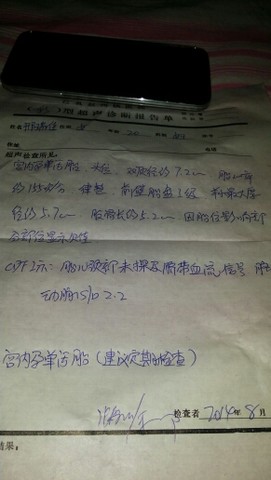 型超声诊断报告单
超声检查所见:
宫内孕单活胎 头位 双顶径约7.2cm 胎心率
约135次/分 律整 前壁胎盘Ⅰ级 羊水大深
径约5.7cm 股骨长约5.2cm 因胎位影响部
分部位显示欠佳
CDFI示:胎儿颈部未探及脐带血流信号 脐
动脉S/D 2.2
宫内孕单活胎(建议定期检查)
检查者 2014年8月
结果: